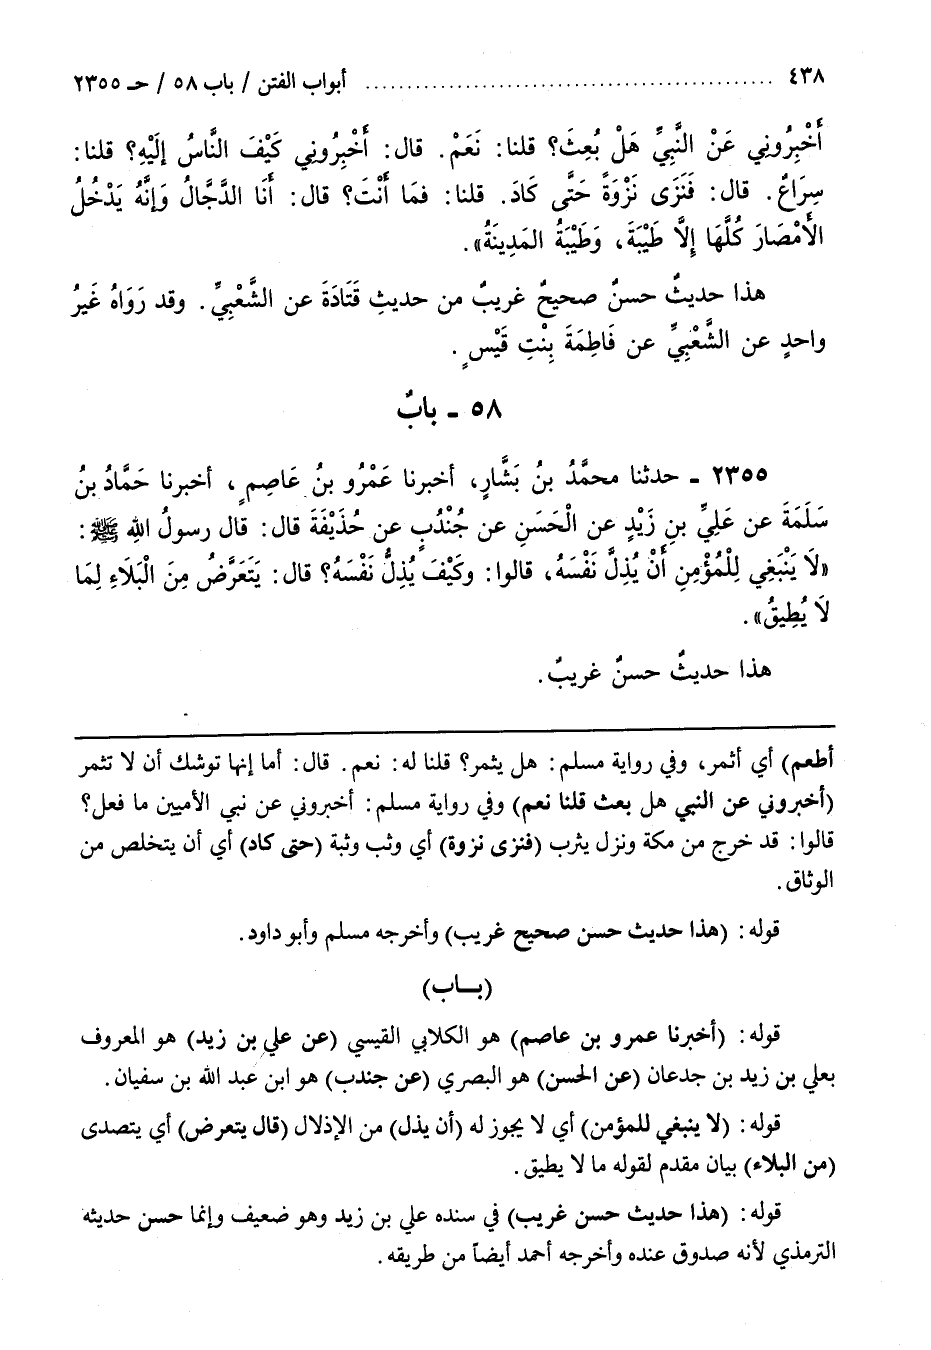 ٤٣٨ ................................................ أبواب الفتن / باب ٥٨ / حـ ٢٣٥٥
أَخْبِرُونِي عَنْ النَّبِيِّ هَلْ بُعِثَ؟ قلنا: نَعَمْ. قال: أَخْبِرُونِي كَيْفَ النَّاسُ إلَيْهِ؟ قلنا:
سِرَاعٌ. قال: فَنَزَى نَزْوَةً حَتَّى كَادَ. قلنا: فمَا أَنْتَ؟ قال: أَنَا الدَّجَّالُ وَإنَّهُ يَدْخُلُ
الأَمْصَارَ كُلَّهَا إلاَّ طَيْبَةَ، وَطَيْبَةُ المَدِينَةُ».
هذا حديثٌ حسنٌ صحيحٌ غريبٌ من حديثِ قَتَادَةَ عن الشَّعْبِيِّ. وقد رَوَاهُ غَيرُ
واحدٍ عن الشَّعْبِيِّ عن فَاطِمَةَ بِنْتِ قَيْسٍ.
٥٨ ـ بابٌ
٢٣٥٥ ـ حدثنا محمَّدُ بنُ بَشَّارٍ، أخبرنا عَمْرُو بنُ عَاصِمٍ، أخبرنا حَمَّادُ بنُ
سَلَمَةَ عن عَلِيِّ بنِ زَيْدٍ عن الْحَسَنِ عن جُنْدُبٍ عن حُذَيْفَةَ قال: قال رسولُ اللهِ ﷺ:
«لاَ يَنْبَغِي لِلْمُؤْمِنِ أَنْ يُذِلَّ نَفْسَهُ، قالوا: وكَيْفَ يُذِلُّ نَفْسَهُ؟ قال: يَتَعَرَّضُ مِنَ الْبَلَاءِ لِمَا
لاَ يُطِيقُ».
هذا حديثٌ حسنٌ غريبٌ.
أطعم) أي أثمر، وفي رواية مسلم: هل يثمر؟ قلنا له: نعم. قال: أما إنها توشك أن لا تثمر
(أخبروني عن النبي هل بعث قلنا نعم) وفي رواية مسلم: أخبروني عن نبي الأميين ما فعل؟
قالوا: قد خرج من مكة ونزل يثرب (فنزى نزوة) أي وثب وثبة (حتى كاد) أي أن يتخلص من
الوثاق.
قوله: (هذا حديث حسن صحيح غريب) وأخرجه مسلم وأبو داود.
(بــاب)
قوله: (أخبرنا عمرو بن عاصم) هو الكلابي القيسي (عن علي بن زيد) هو المعروف
بعلي بن زيد بن جدعان (عن الحسن) هو البصري (عن جندب) هو ابن عبد الله بن سفيان.
قوله: (لا ينبغي للمؤمن) أي لا يجوز له (أن يذل) من الإذلال (قال يتعرض) أي يتصدى
(من البلاء) بيان مقدم لقوله ما لا يطيق.
قوله: (هذا حديث حسن غريب) في سنده علي بن زيد وهو ضعيف وإنما حسن حديثه
الترمذي لأنه صدوق عنده وأخرجه أحمد أيضاً من طريقه.